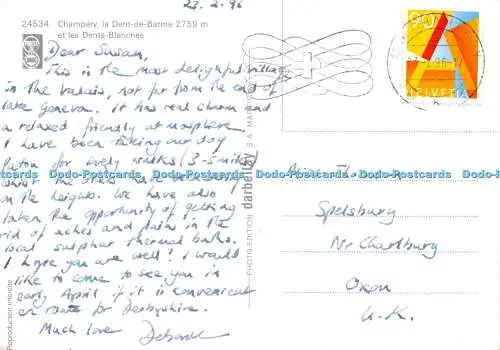 27.2.96
24534 Champéry, la Dent-de-Barme 2759 m
et les Dents-Blanches
Dear Susan,
This is the most delightful village
in the Valais, not far from the end of
lake Geneva. It has real charm and
a relaxed friendly atmosphere.
I have been taking our dog
for lovely walks (3-5 miles)
whilst the others have been
on the heights. We have also
taken the opportunity of getting
rid of aches and pains in the
local sulphur thermal baths.
I hope you are well? I would
like to come to see you in
early April if it is convenient
en route for Derbyshire.
Much love Deborah
Reproduction interdite
PHOTO EDITION darbellay S.A.
HELVETIA
A
2.96-17
Spelsbury
Nr Charlbury
Oxon
U.K.
Dodo-Postcards.com Dodo-Postcards.com Dodo-Postcards.com Dodo-Postcards.com